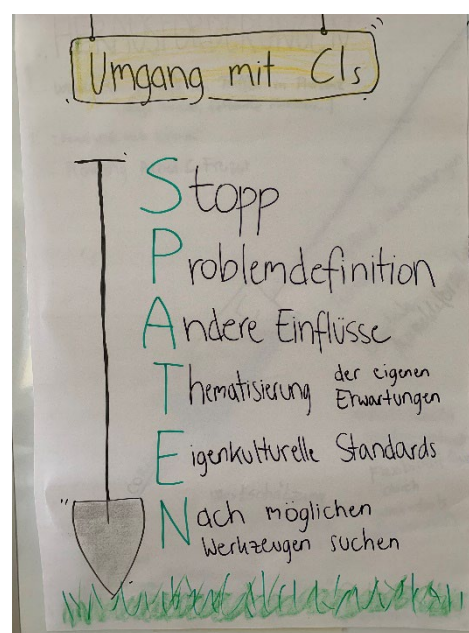 Umgang mit CIs
Stopp
Problemdefinition
Andere Einflüsse
Thematisierung der eigenen
Erwartungen
Eigenkulturelle Standards
Nach möglichen
Werkzeugen suchen